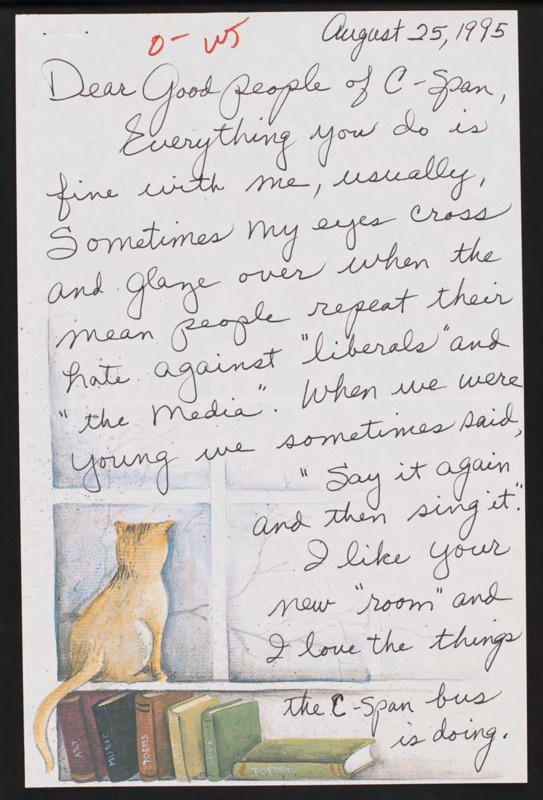 O- W5
August 25, 1995
Dear Good people of C-Span,
Everything you do is
fine with me, usually,
Sometimes my eyes cross
and glaze over when the
mean people repeat their
hate against "liberals" and
"the Media". When we were
young we sometimes said,
"Say it again
and then sing it".
I like your
new "room" and
I love the things
the C-Span bus
is doing.
ART
MUSIC
POEMS
POETRY